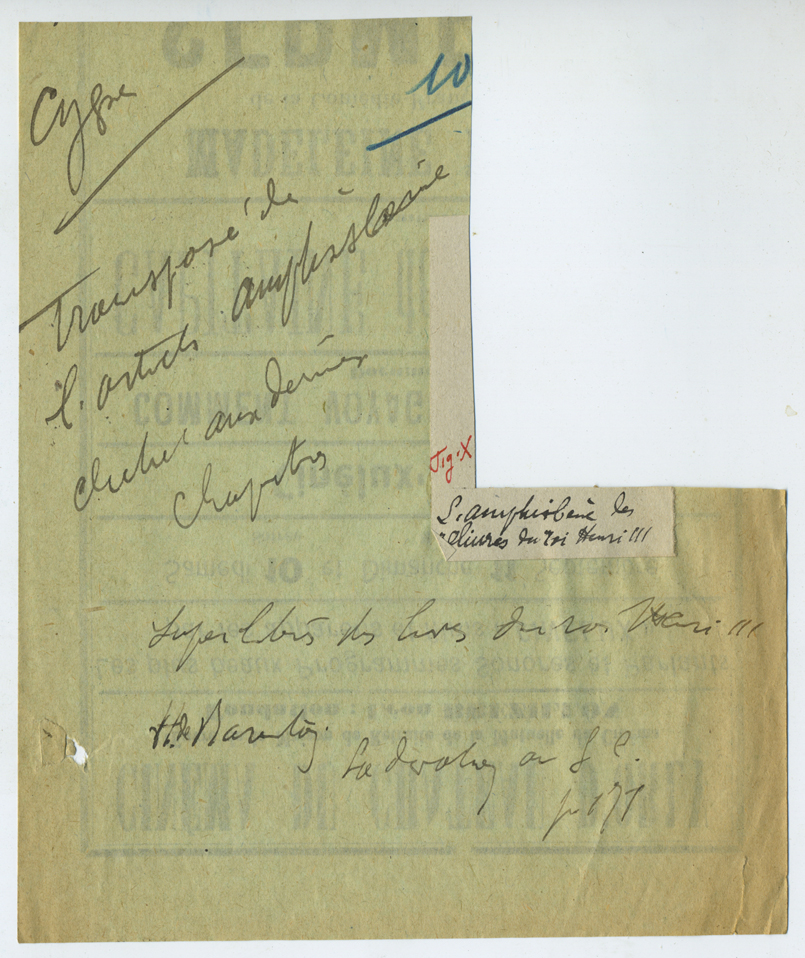 Cygne
10
Transposé de
l'article amphisbène
cliché aux derniers
chapitres
Fig. X
L'amphisbène des
livres du roi Henri III
Superlibris des livres du roi Henri III
H. de Barenton
La dévotion au S. C.
p. 171